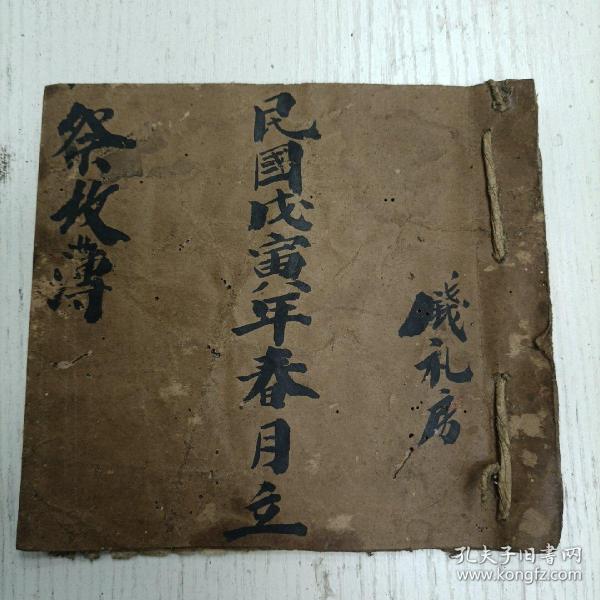 礼房
民國戊寅年春月立
祭坆薄
孔夫子旧书网
www.kongfz.com